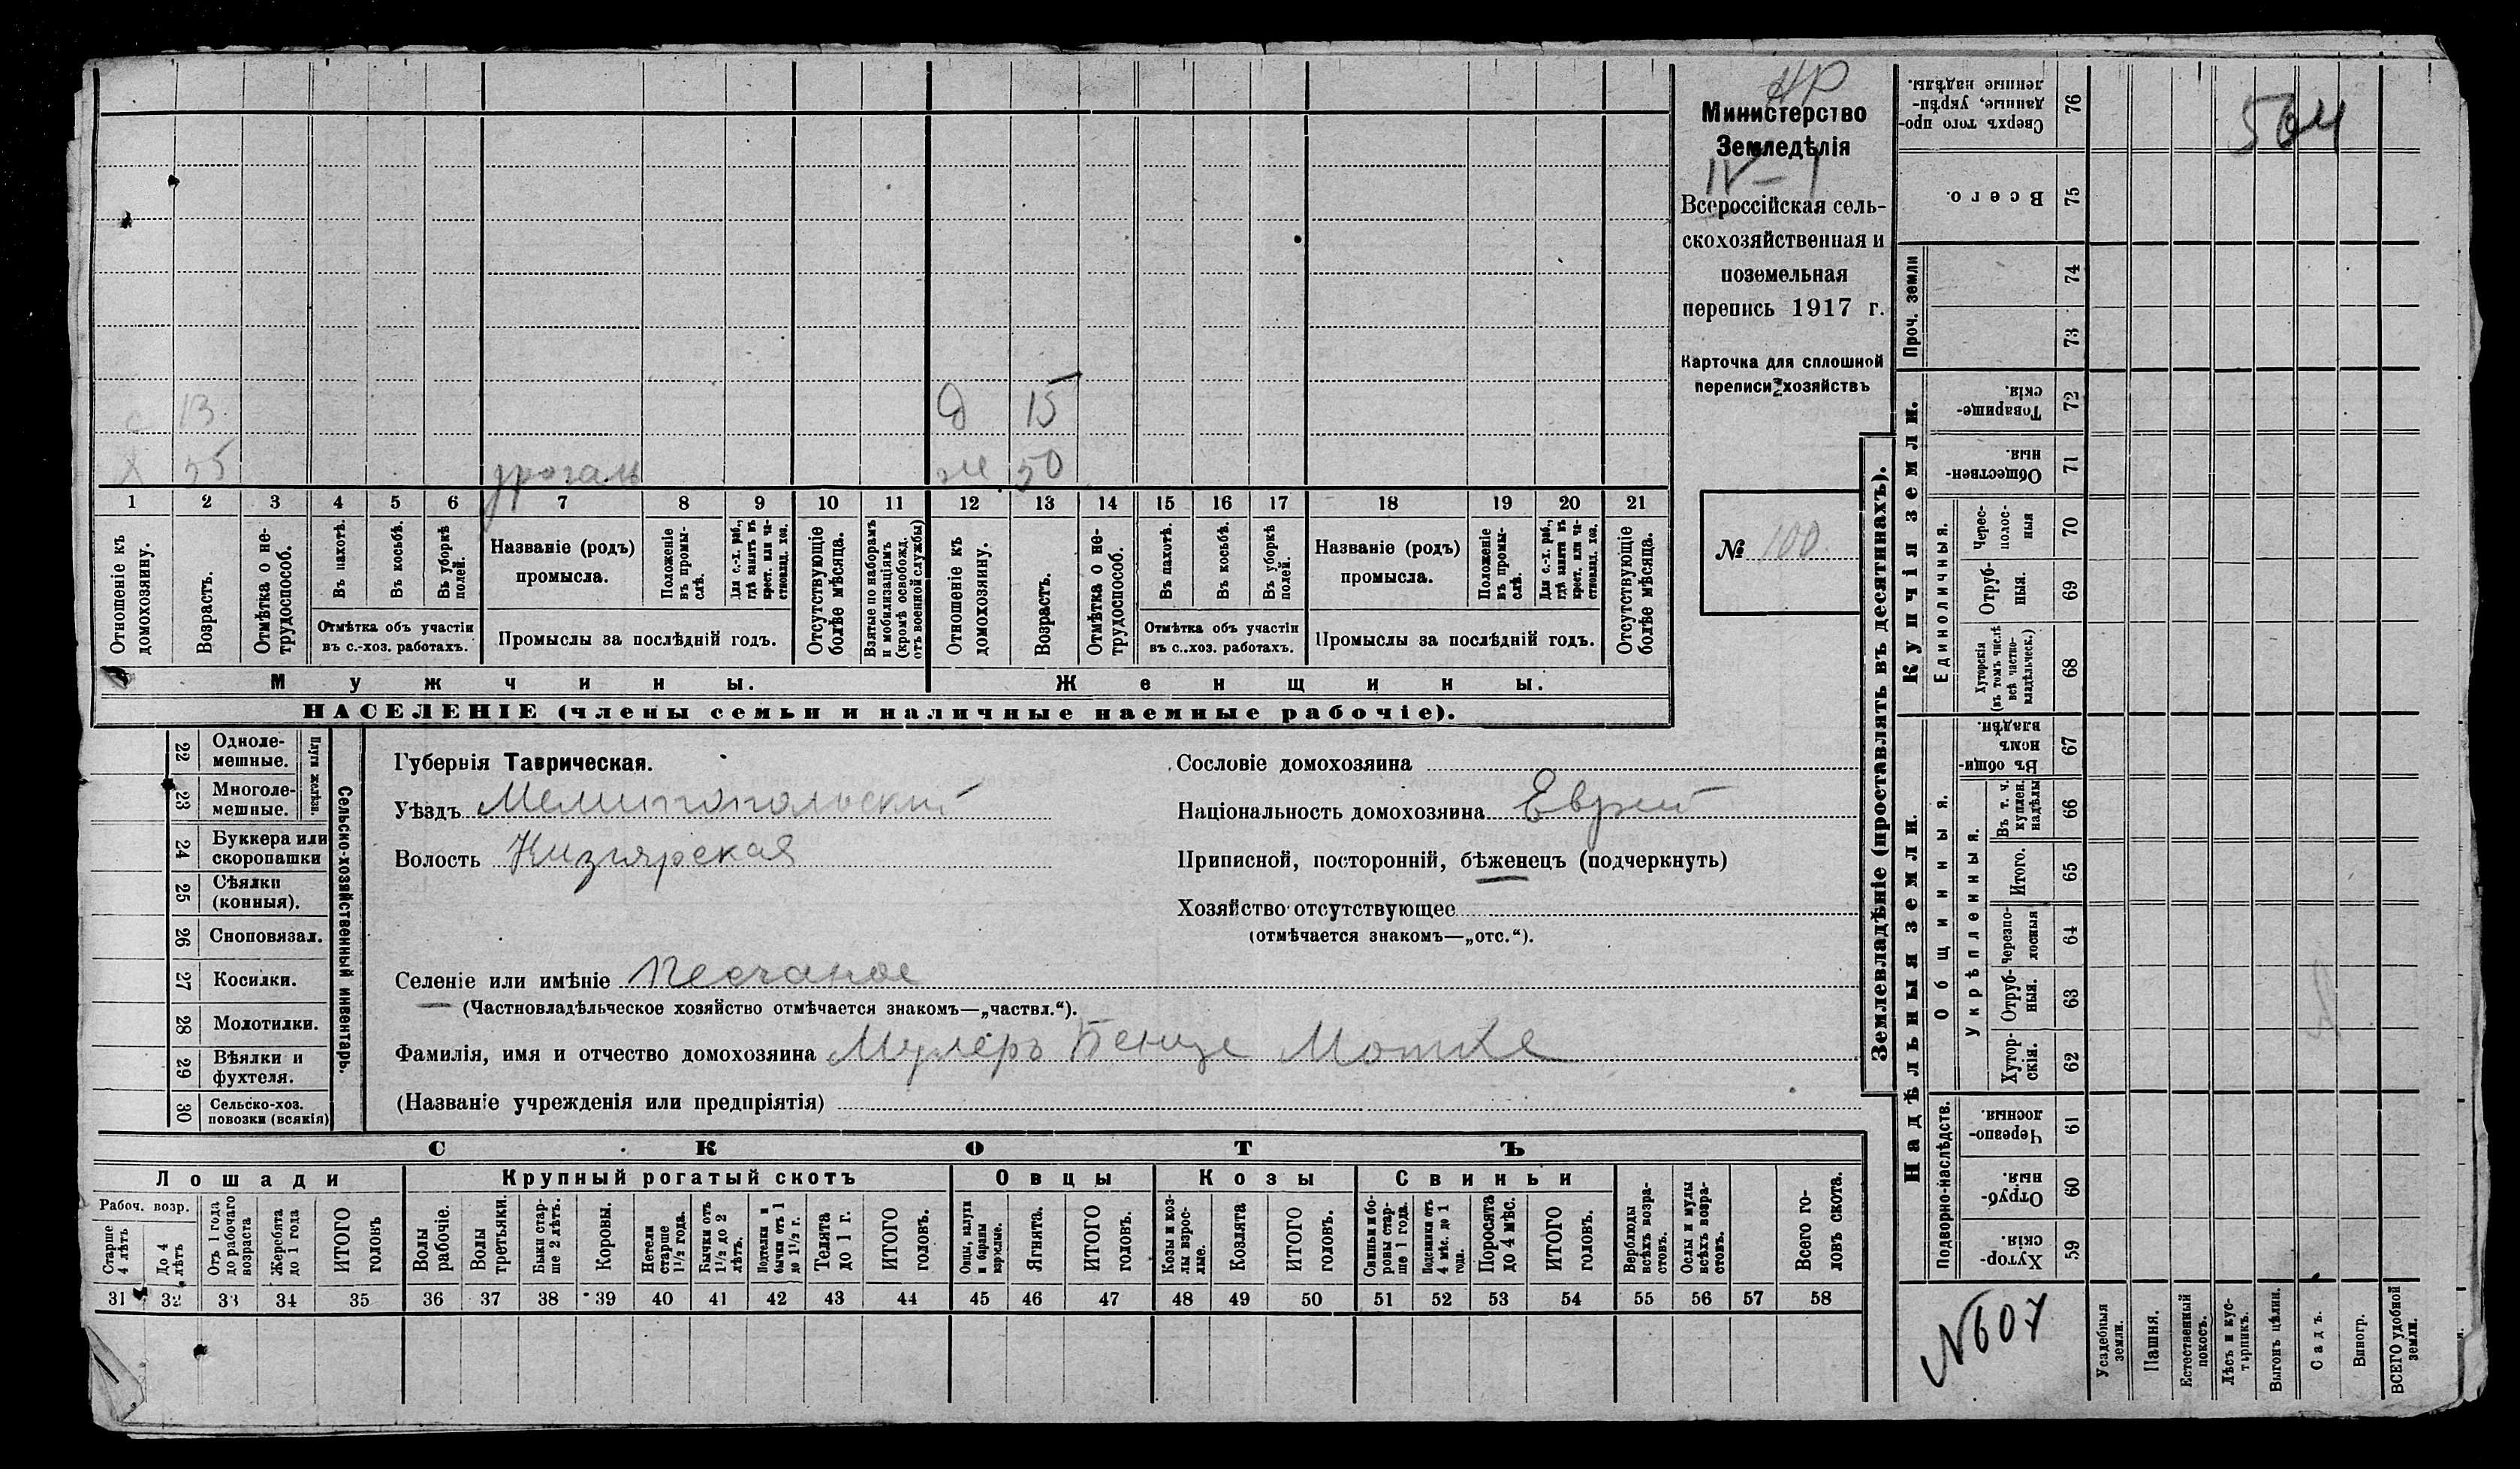 НР
Министерство
Земледѣлія
IV – 1
Всероссійская сель-
скохозяйственная и
поземельная
перепись 1917 г.
Карточка для сплошной
переписи хозяйствъ
№ 100
с 13
д 15
х 55 дрогаль
ж 50
1 2 3 4 5 6 7 8 9 10 11 12 13 14 15 16 17 18 19 20 21
Отношеніе къ домохозяину.
Возрастъ.
Отмѣтка о не-трудоспособ.
Въ пахотѣ.
Въ косьбѣ.
Въ уборкѣ полей.
Отмѣтка объ участіи
въ с.-хоз. работахъ.
Названіе (родъ)
промысла.
Положеніе въ промы-слѣ.
Для с.-х. раб., гдѣ занятъ въ крест. или ча-стновлад. хоз.
Промыслы за послѣдній годъ.
Отсутствующіе болѣе мѣсяца.
Взятые по наборамъ и мобилизаціямъ (кромѣ освобожд. отъ военной службы)
Отношеніе къ домохозяину.
Возрастъ.
Отмѣтка о не-трудоспособ.
Въ пахотѣ.
Въ косьбѣ.
Въ уборкѣ полей.
Отмѣтка объ участіи
въ с..хоз. работахъ.
Названіе (родъ)
промысла.
Положеніе въ промы-слѣ.
Для с.-х. раб., гдѣ занята въ крест. или ча-стновлад. хоз.
Промыслы за послѣдній годъ.
Отсутствующіе болѣе мѣсяца.
Мужчины.
Женщины.
НАСЕЛЕНІЕ (члены семьи и наличные наемные рабочіе).
22 Одноле-мешные.
23 Многоле-мешные.
Плуги желѣзн.
24 Буккера или скоропашки
25 Сѣялки (конныя).
26 Сноповязал.
27 Косилки.
28 Молотилки.
29 Вѣялки и фухтеля.
30 Сельско-хоз. повозки (всякія)
Сельско-хозяйственный инвентарь.
Губернія Таврическая.
Уѣздъ Мелитопольский
Волость Кизиярская
Селеніе или имѣніе Песчаное
(Частновладѣльческое хозяйство отмѣчается знакомъ—„частвл.“).
Фамилія, имя и отчество домохозяина Мулеръ Бенце Мотке
(Названіе учрежденія или предпріятія)
Сословіе домохозяина
Національность домохозяина Еврей
Приписной, посторонній, бѣженецъ (подчеркнуть)
Хозяйство отсутствующее
(отмѣчается знакомъ—„отс.“).
СКОТЪ
Лошади
Крупный рогатый скотъ
Овцы
Козы
Свиньи
Рабоч. возр.
Старше 4 лѣтъ
До 4 лѣтъ
Отъ 1 года до рабочаго возраста
Жеребята до 1 года
ИТОГО головъ
Волы рабочіе.
Волы третьяки.
Быки стар-ше 2 лѣтъ.
Коровы.
Нетели старше 1½ года.
Бычки отъ 1½ до 2 лѣтъ.
Подтелки и бычки отъ 1 до 1½ г.
Телята до 1 г.
ИТОГО головъ.
Овцы, валухи и бараны взрослые.
Ягнята.
ИТОГО головъ.
Козы и коз-лы взрос-лые.
Козлята
ИТОГО головъ.
Свиньи и бо-ровы стар-ше 1 года.
Подсвинки отъ 4 мѣс. до 1 года.
Поросята до 4 мѣс.
ИТОГО головъ.
Верблюды всѣхъ возра-стовъ.
Ослы и мулы всѣхъ возра-стовъ.
Всего го-ловъ скота.
31 32 33 34 35 36 37 38 39 40 41 42 43 44 45 46 47 48 49 50 51 52 53 54 55 56 57 58
Землевладѣніе (проставлять въ десятинахъ).
Надѣльныя земли.
Купчія земли.
Проч. земли
Сверхъ того про-данные, укрѣп-ленные надѣлы. 76
Всего. 75
74
73
Товарище-скія 72
Обществен-ныя. 71
Единоличныя.
Черес-полос-ныя 70
Отруб-ныя. 69
Хуторскія (въ томъ числѣ всѣ частно-владѣльческ.) 68
Общинныя.
Въ общи-номъ владѣн. 67
Укрѣпленныя.
Въ т. ч. куплен. надѣлы 66
Итого. 65
Черезпо-лосныя 64
Отруб-ныя. 63
Хутор-скія. 62
Подворно-наслѣдств.
Черезпо-лосныя. 61
Отруб-ныя. 60
Хутор-скія. 59
504
№607
Усадебныя земли.
Пашня.
Естественный покосъ.
Лѣсъ и кус-тарникъ.
Выгонъ цѣлин.
Садъ.
Виногр.
ВСЕГО удобной земли.